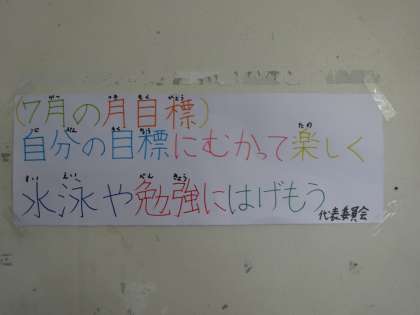 (7月の月目標)
自分の目標にむかって楽しく
水泳や勉強にはげもう
代表委員会